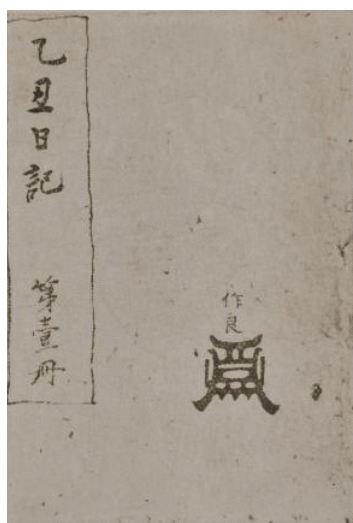 乙丑日記 第壹冊
作良